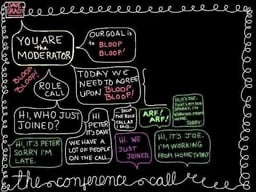 YOU ARE
the
MODERATOR
OUR GOAL
is to BLOOP
BLOOP!
BLOOP
BLOOP!
ROLE
CALL
TODAY WE
NEED TO AGREE
UPON BLOOP
BLOOP!
HI, WHO JUST
JOINED?
HI, IT'S PETER
SORRY I'M
LATE.
HI
PETER
IT'S DAVE
WE HAVE A
LOT OF PEOPLE
ON THE CALL.
ROLE
CALL AS
I SAID
HI WE
JUST
JOINED
ARF!
ARF!
HI, IT'S JOE.
I'M WORKING
FROM HOME TODAY
the conference call